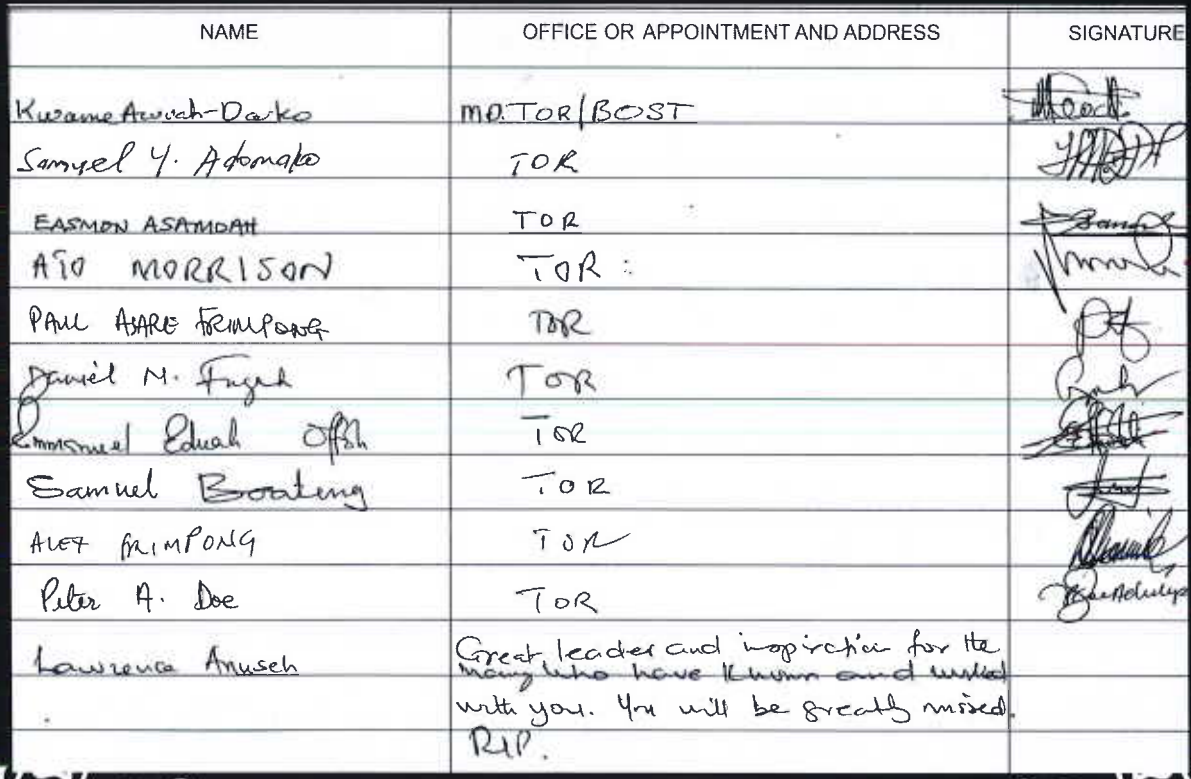 NAME OFFICE OR APPOINTMENT AND ADDRESS SIGNATURE
Kwame Awuah-Darko MD. TOR/BOST
Samuel Y. Adomako TOR
EASMON ASAMOAH TOR
ATO MORRISON TOR
PAUL ASARE FRIMPONG TOR
Daniel M. TOR
Emmanuel Eduah TOR
Samuel Boateng TOR
ALEX FRIMPONG TOR
Peter A. Doe TOR
Lawrence Anuseh Great leader and inspiration for the
many who have known and worked
with you. You will be greatly missed.
RIP.